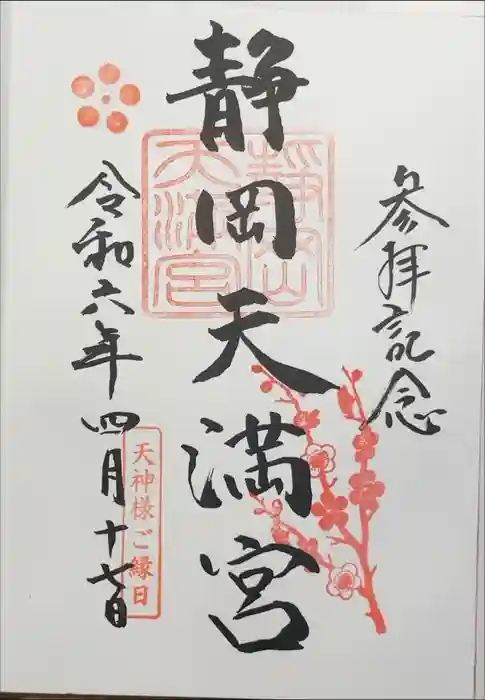 参拝記念
静岡天満宮
静岡
天満宮
令和六年四月十七日
天神様ご縁日